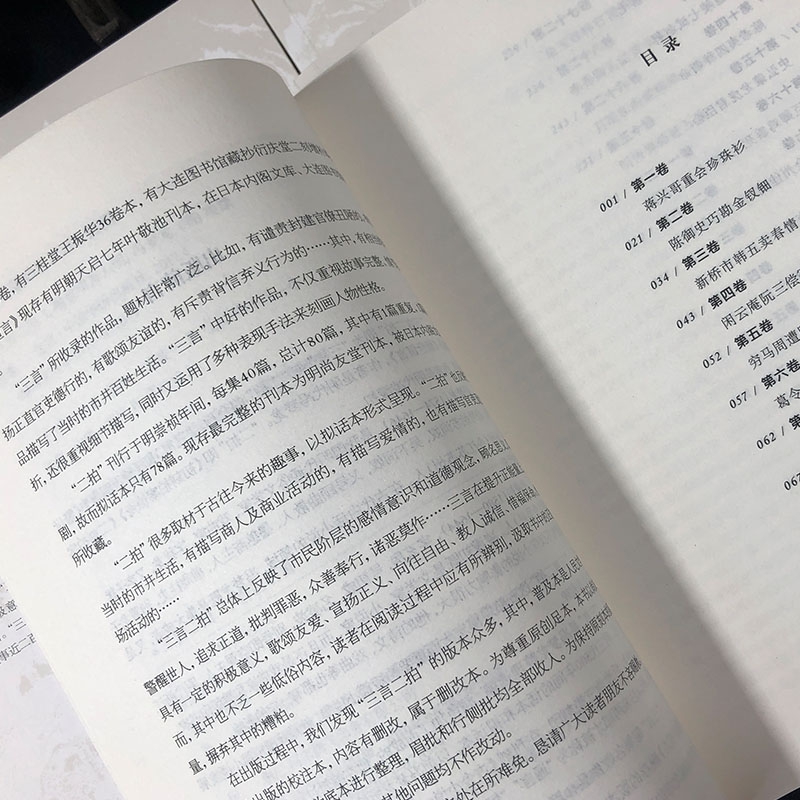 卷，有三桂堂王振华36卷本，有大连图书馆藏抄衍庆堂二刻增
言》现存有明朝天启七年叶敬池刊本，在日本内阁文库、大连图书
“三言”所收录的作品，题材非常广泛。比如，有谴责封建官僚丑陋的，
扬正直官吏德行的，有歌颂友谊的，有斥责背信弃义行为的……其中，有相
品描写了当时的市井百姓生活。“三言”中好的作品，不仅重视故事完整，情
折，还很重视细节描写，同时又运用了多种表现手法来刻画人物性格。
“二拍”刊行于明崇祯年间，每集40篇，总计80篇，其中有1篇重复，
剧，故而拟话本只有78篇。现存最完整的刊本为明尚友堂刊本，被日本内阁
所收藏。
“二拍”很多取材于古往今来的趣事，以拟话本形式呈现。“二拍”也反
当时的市井生活，有描写商人及商业活动的，有描写爱情的，也有描写官
场活动的……
“三言二拍”总体上反映了市民阶层的感情意识和道德观念，顾名思
警醒世人，追求正道，批判罪恶，众善奉行，诸恶莫作……三言在提升正能量
具有一定的积极意义，歌颂友爱、宣扬正义、向往自由、教人诚信、惜福
而，其中也不乏一些低俗内容，读者在阅读过程中应有所辨别，汲取书中的
量，摒弃其中的糟粕。
在出版过程中，我们发现“三言二拍”的版本众多，其中，普及本是人民
出版的校注本，内容有删改，属于删改本。为尊重原创足本，本书
底本进行整理，眉批和行侧批均全部收入。为保持原
其他问题均不作改动。
处在所难免。恳请广大读者朋友不吝
目录
001 / 第一卷
蒋兴哥重会珍珠衫
021 / 第二卷
陈御史巧勘金钗钿
034 / 第三卷
新桥市韩五卖春情
043 / 第四卷
闲云庵阮三偿
052 / 第五卷
穷马周遭
057 / 第六卷
葛令
062 / 第
067